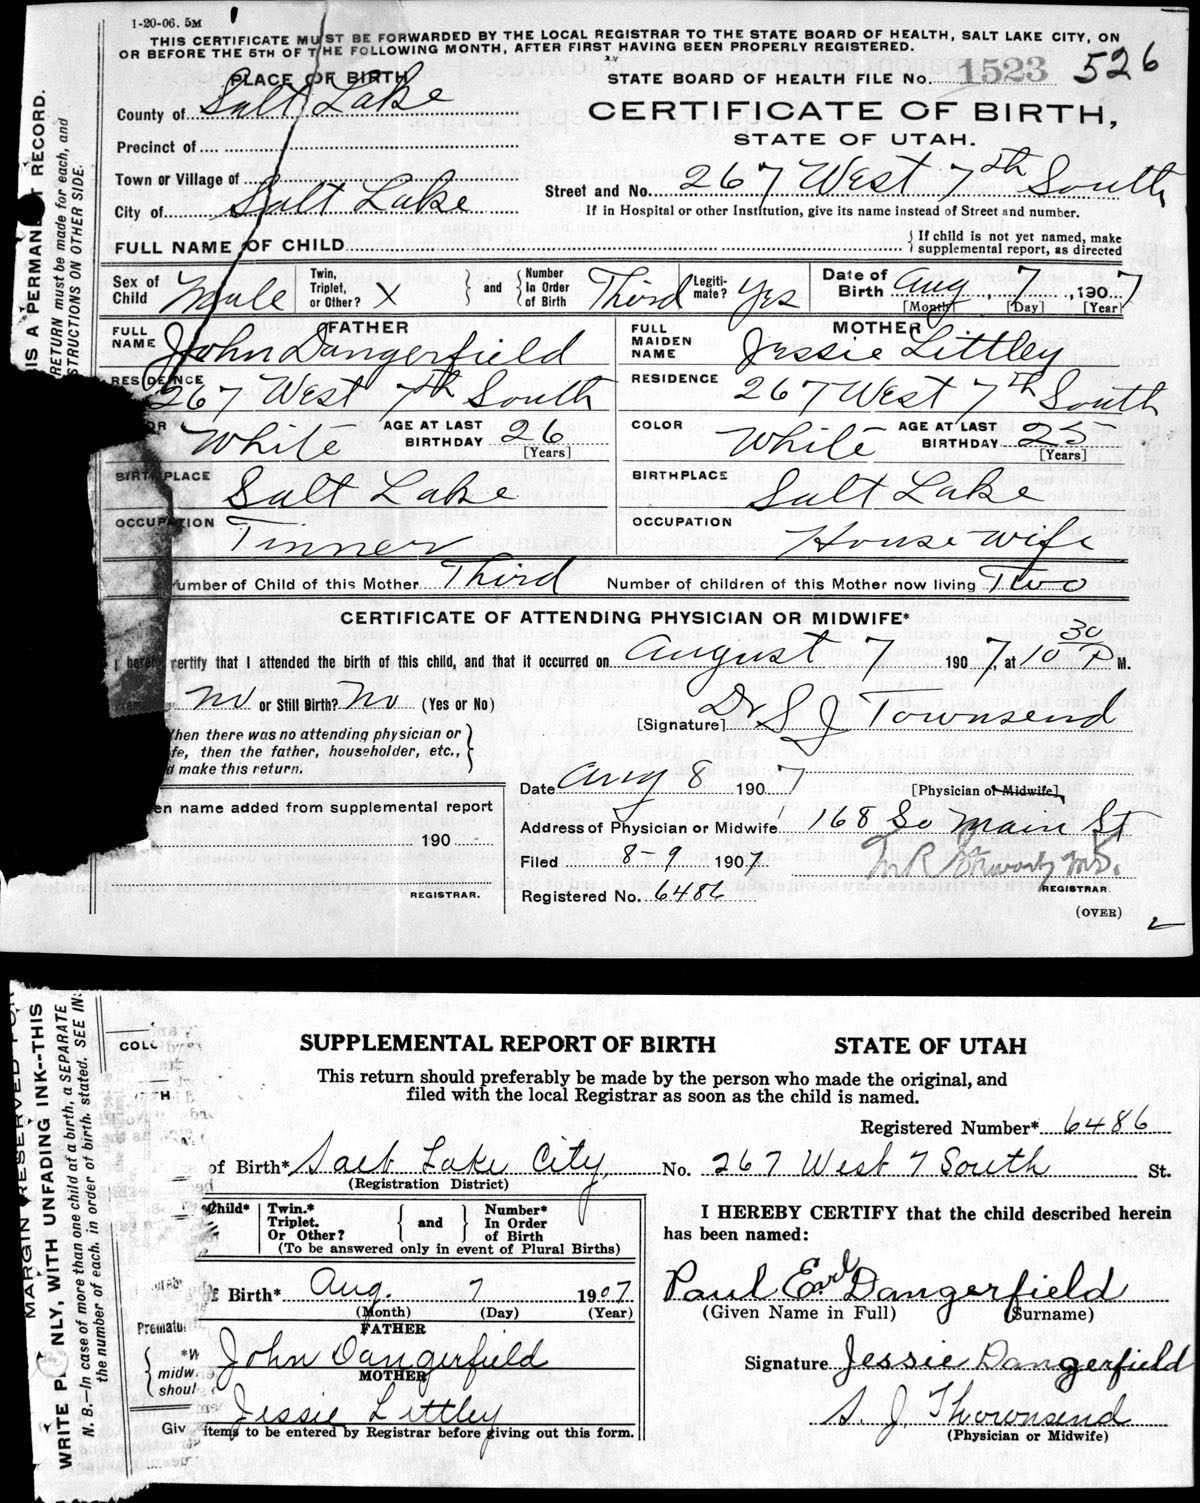 1-20-06. 5M
THIS CERTIFICATE MUST BE FORWARDED BY THE LOCAL REGISTRAR TO THE STATE BOARD OF HEALTH, SALT LAKE CITY, ON
OR BEFORE THE 5TH OF THE FOLLOWING MONTH, AFTER FIRST HAVING BEEN PROPERLY REGISTERED.
PLACE OF BIRTH
STATE BOARD OF HEALTH FILE No. 1523 526
County of Salt Lake
CERTIFICATE OF BIRTH,
STATE OF UTAH.
Precinct of
Town or Village of
Street and No. 267 West 7th South
City of Salt Lake
If in Hospital or other Institution, give its name instead of Street and number.
FULL NAME OF CHILD
If child is not yet named, make
supplemental report, as directed
Sex of Child Male
Twin, Triplet, or Other? X
and
Number In Order of Birth Third
Legiti-mate? Yes
Date of Birth Aug, 7, 1907
[Month] [Day] [Year]
FATHER
FULL NAME John Dangerfield
RESIDENCE
267 West 7th South
White
AGE AT LAST BIRTHDAY 26
[Years]
BIRTHPLACE Salt Lake
OCCUPATION Tinner
MOTHER
FULL MAIDEN NAME Jessie Littley
RESIDENCE 267 West 7th South
COLOR White
AGE AT LAST BIRTHDAY 25
[Years]
BIRTHPLACE Salt Lake
OCCUPATION House wife
umber of Child of this Mother Third Number of children of this Mother now living Two
CERTIFICATE OF ATTENDING PHYSICIAN OR MIDWIFE*
I hereby certify that I attended the birth of this child, and that it occurred on August 7 1907, at 10 30 P M.
No or Still Birth? No (Yes or No)
[Signature] Dr S J Townsend
hen there was no attending physician or
fe, then the father, householder, etc.,
d make this return.
Date Aug 8 1907
[Physician or Midwife]
en name added from supplemental report
190
REGISTRAR.
Address of Physician or Midwife 168 So Main St
Filed 8-9 1907
REGISTRAR
Registered No. 6486
(OVER)
IS A PERMANENT RECORD.
RETURN must be made for each, and
STRUCTIONS ON OTHER SIDE.
SUPPLEMENTAL REPORT OF BIRTH STATE OF UTAH
This return should preferably be made by the person who made the original, and
filed with the local Registrar as soon as the child is named.
Registered Number* 6486
of Birth* Salt Lake City, No. 267 West 7 South St.
(Registration District)
Child*
Twin.* Triplet. Or Other?
and
Number* In Order of Birth
(To be answered only in event of Plural Births)
Birth* Aug. 7 1907
(Month) (Day) (Year)
FATHER
John Dangerfield
MOTHER
Jessie Littley
items to be entered by Registrar before giving out this form.
I HEREBY CERTIFY that the child described herein
has been named:
Paul Earl Dangerfield
(Given Name in Full) (Surname)
Signature Jessie Dangerfield
S. J. Thownsend
(Physician or Midwife)
COLO
TH
Prematu
*W
midw.
shoul
Giv
MARGIN RESERVED FOR
WRITE PLAINLY, WITH UNFADING INK--THIS
N. B.—In case of more than one child at a birth, a SEPARATE
the number of each, in order of birth, stated. SEE IN